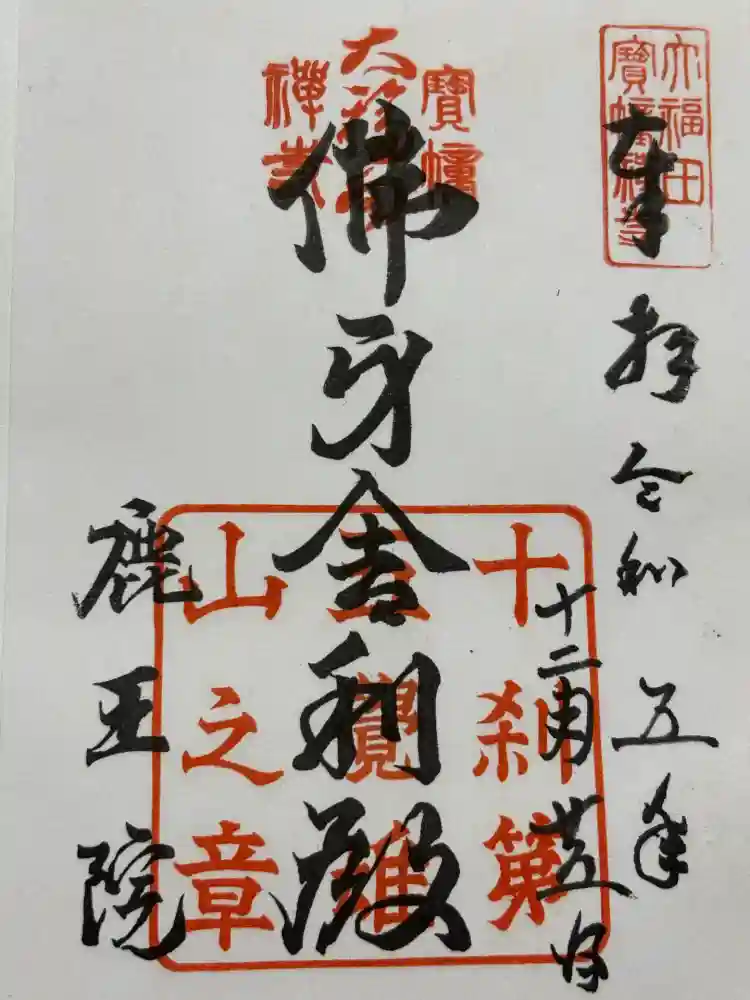 大福田
寶幢禪寺
奉拝
令和五年
十二月廿五日
寶幢
大
禪寺
佛牙舎利殿
十刹第
五覺雄
山之章
鹿王院